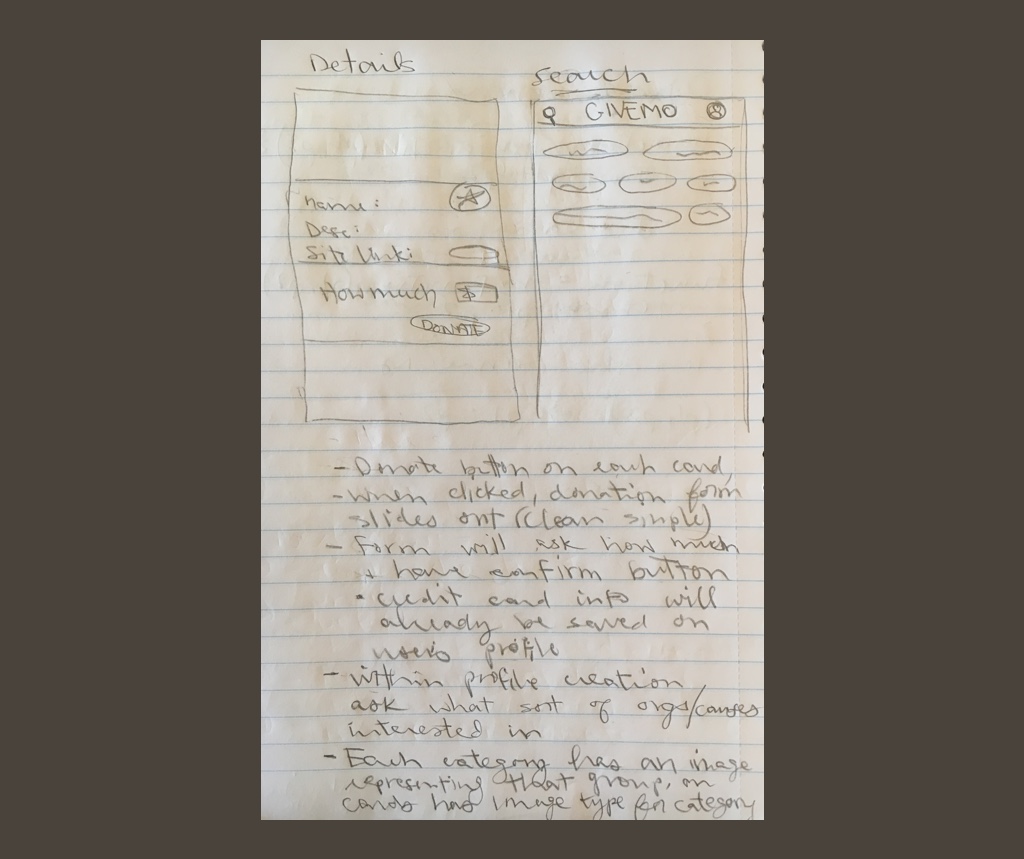 Details
Search
GIVEMO
name:
Desc:
Site link:
How much $
DONATE
- Donate button on each card,
- when clicked, donation form
slides out (clean simple)
- Form will ask how much
+ have confirm button
• credit card info will
already be saved on
users profile
- within profile creation,
ask what sort of orgs/causes
interested in
- Each category has an image
representing that group, on
cards has image type for category